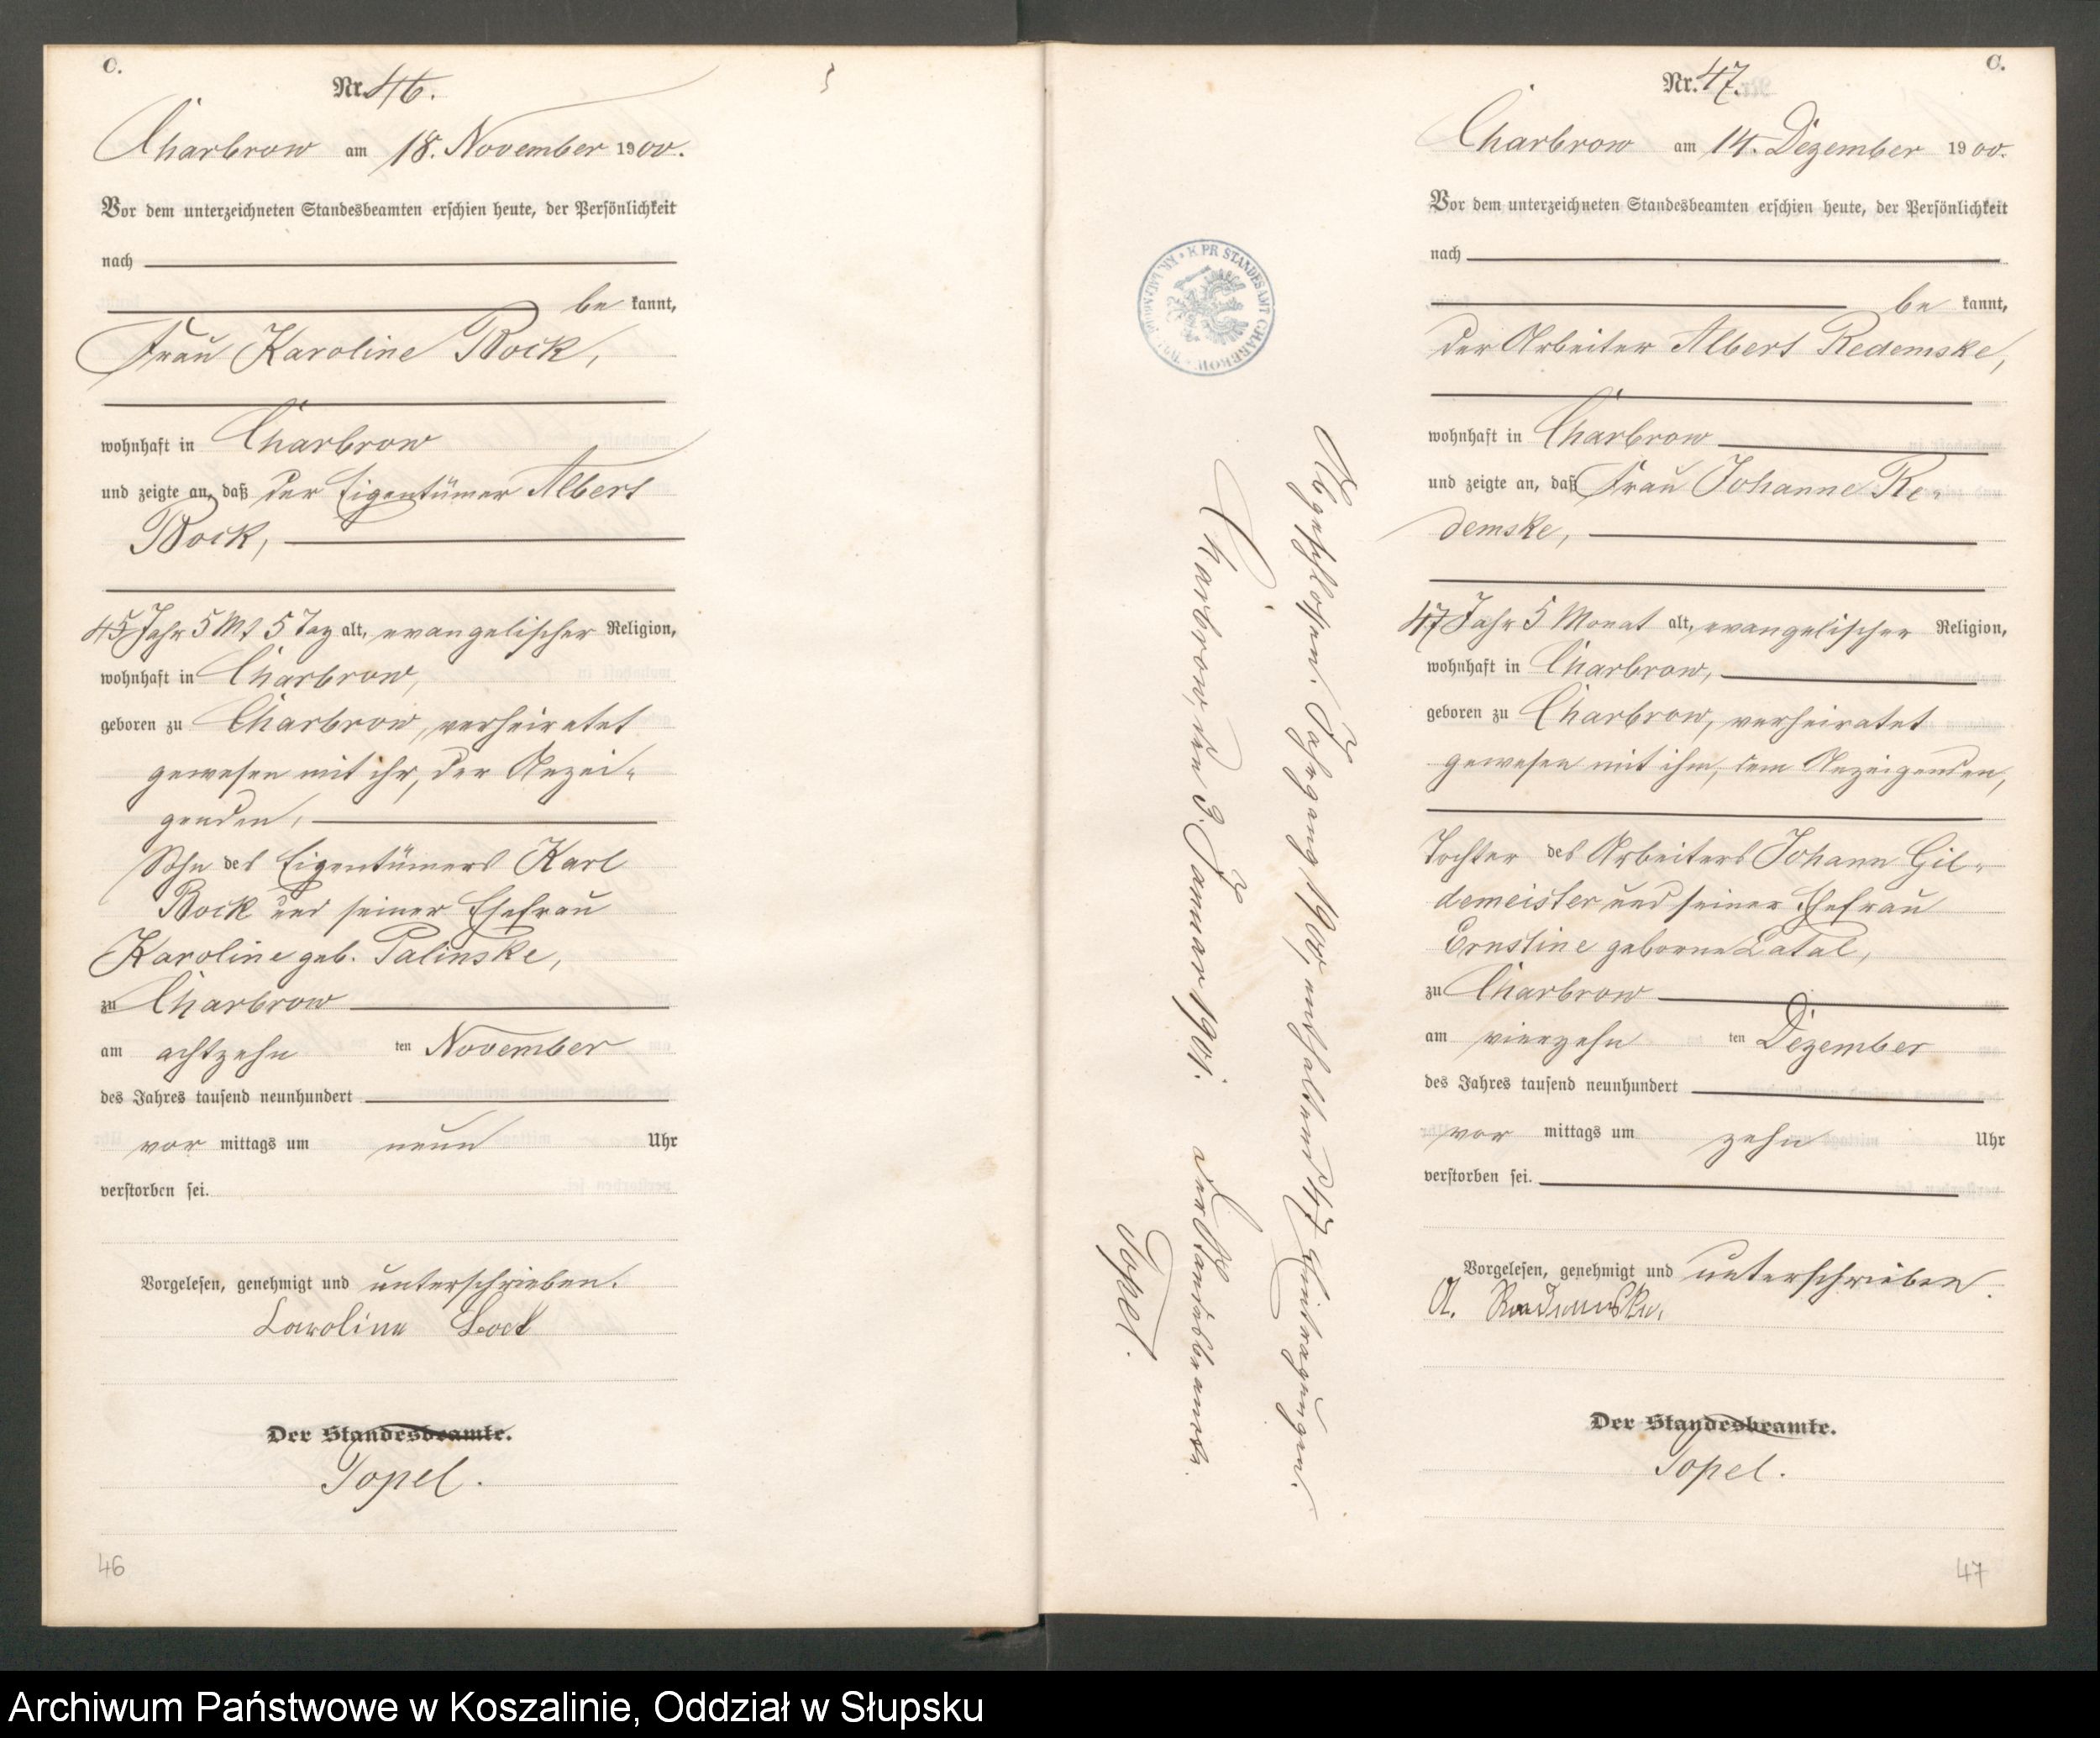 C.
Nr. 46.
Charbrow am 18. November 1900.
Vor dem unterzeichneten Standesbeamten erschien heute, der Persönlichkeit
nach
be kannt,
Frau Karoline Bock,
wohnhaft in Charbrow
und zeigte an, daß der Eigentümer Albert
Bock,
45 Jahr 5 Mt 5 Tag alt, evangelischer Religion,
wohnhaft in Charbrow,
geboren zu Charbrow, verheiratet
gewesen mit ihr, der Anzei-
genden,
Sohn des Eigentümers Karl
Bock und seiner Ehefrau
Karoline geb. Palinske,
zu Charbrow
am achtzehn ten November
des Jahres tausend neunhundert
vor mittags um neun Uhr
verstorben sei.
Vorgelesen, genehmigt und unterschrieben.
Karoline Bock
Der Standesbeamte.
Topel.
46
C.
Nr. 47.
Charbrow am 14. Dezember 1900.
Vor dem unterzeichneten Standesbeamten erschien heute, der Persönlichkeit
nach
be kannt,
der Arbeiter Albert Redemske,
wohnhaft in Charbrow
und zeigte an, daß Frau Johanne Re-
demske,
47 Jahr 5 Monat alt, evangelischer Religion,
wohnhaft in Charbrow,
geboren zu Charbrow, verheiratet
gewesen mit ihm, dem Anzeigenden,
Tochter des Arbeiters Johann Gil-
demeister und seiner Ehefrau
Ernstine geborne Latal,
zu Charbrow
am vierzehn ten Dezember
des Jahres tausend neunhundert
vor mittags um zehn Uhr
verstorben sei.
Vorgelesen, genehmigt und unterschrieben.
A. Redemske,
Der Standesbeamte.
Topel.
47
Abgeschlossen: Jahrgang 1900, enthaltend 47 Eintragungen.
Charbrow, den 3. Januar 1901.
Der Standesbeamte.
Topel.
K. PR. STANDESAMT CHARBROW
Archiwum Państwowe w Koszalinie, Oddział w Słupsku